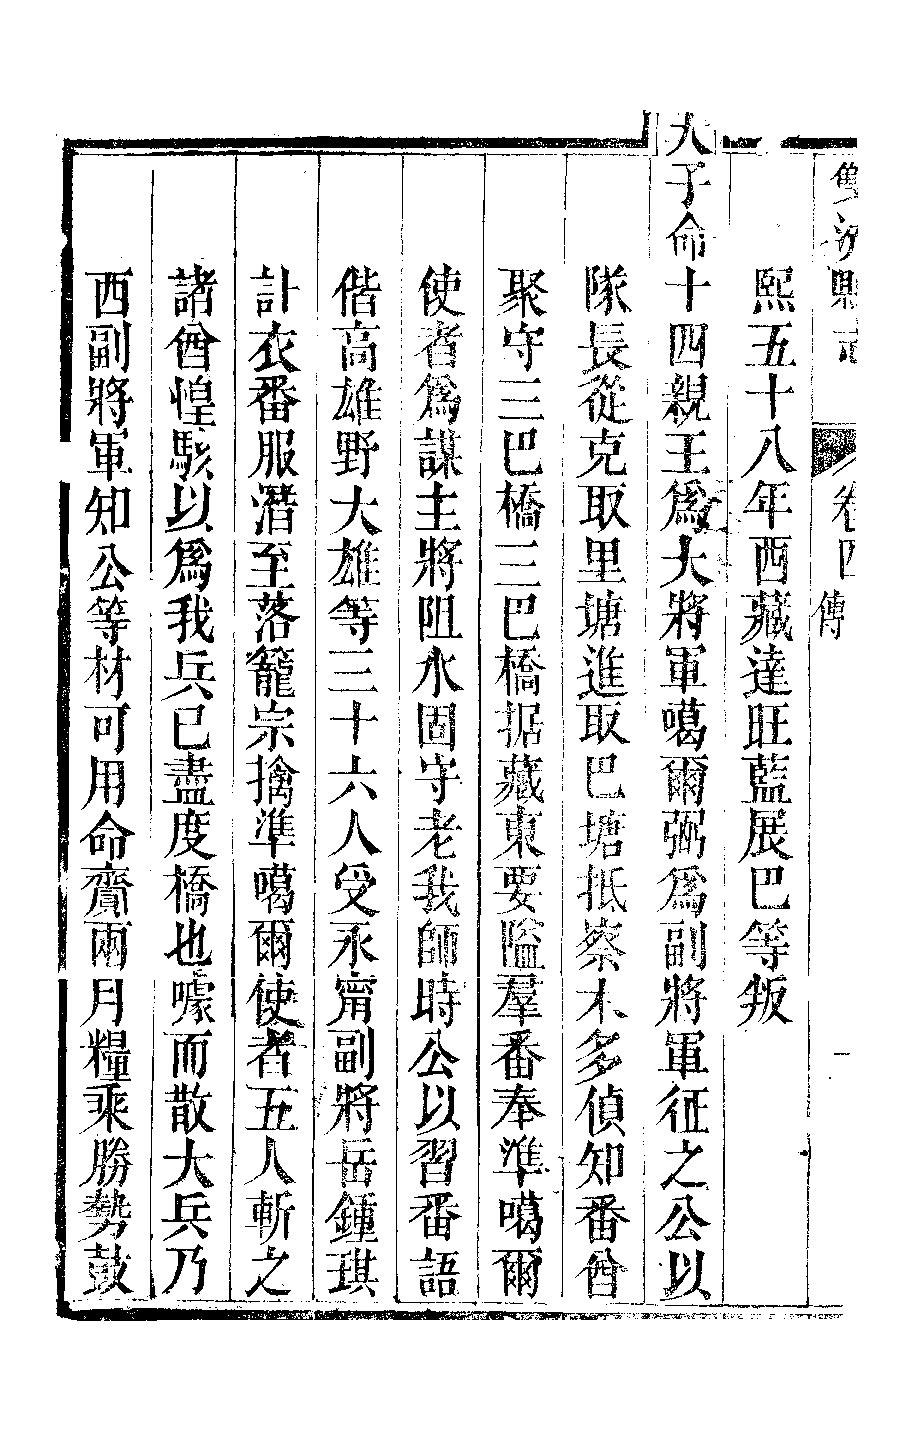 雙流縣志 卷四 傳
熙五十八年西藏達旺藍展巴等叛
天子命十四親王爲大將軍噶爾弼爲副將軍征之公以
隊長從克取里塘進取巴塘抵察木多偵知番酋
聚守三巴橋三巴橋据藏東要隘羣番奉準噶爾
使者爲謀主將阻水固守老我師時公以習番語
偕高雄野大雄等三十六人受永甯副將岳鍾琪
計衣番服潛至落籠宗擒準噶爾使者五人斬之
諸酋惶駭以爲我兵已盡度橋也噱而散大兵乃
西副將軍知公等材可用命齎兩月糧乘勝勢鼓